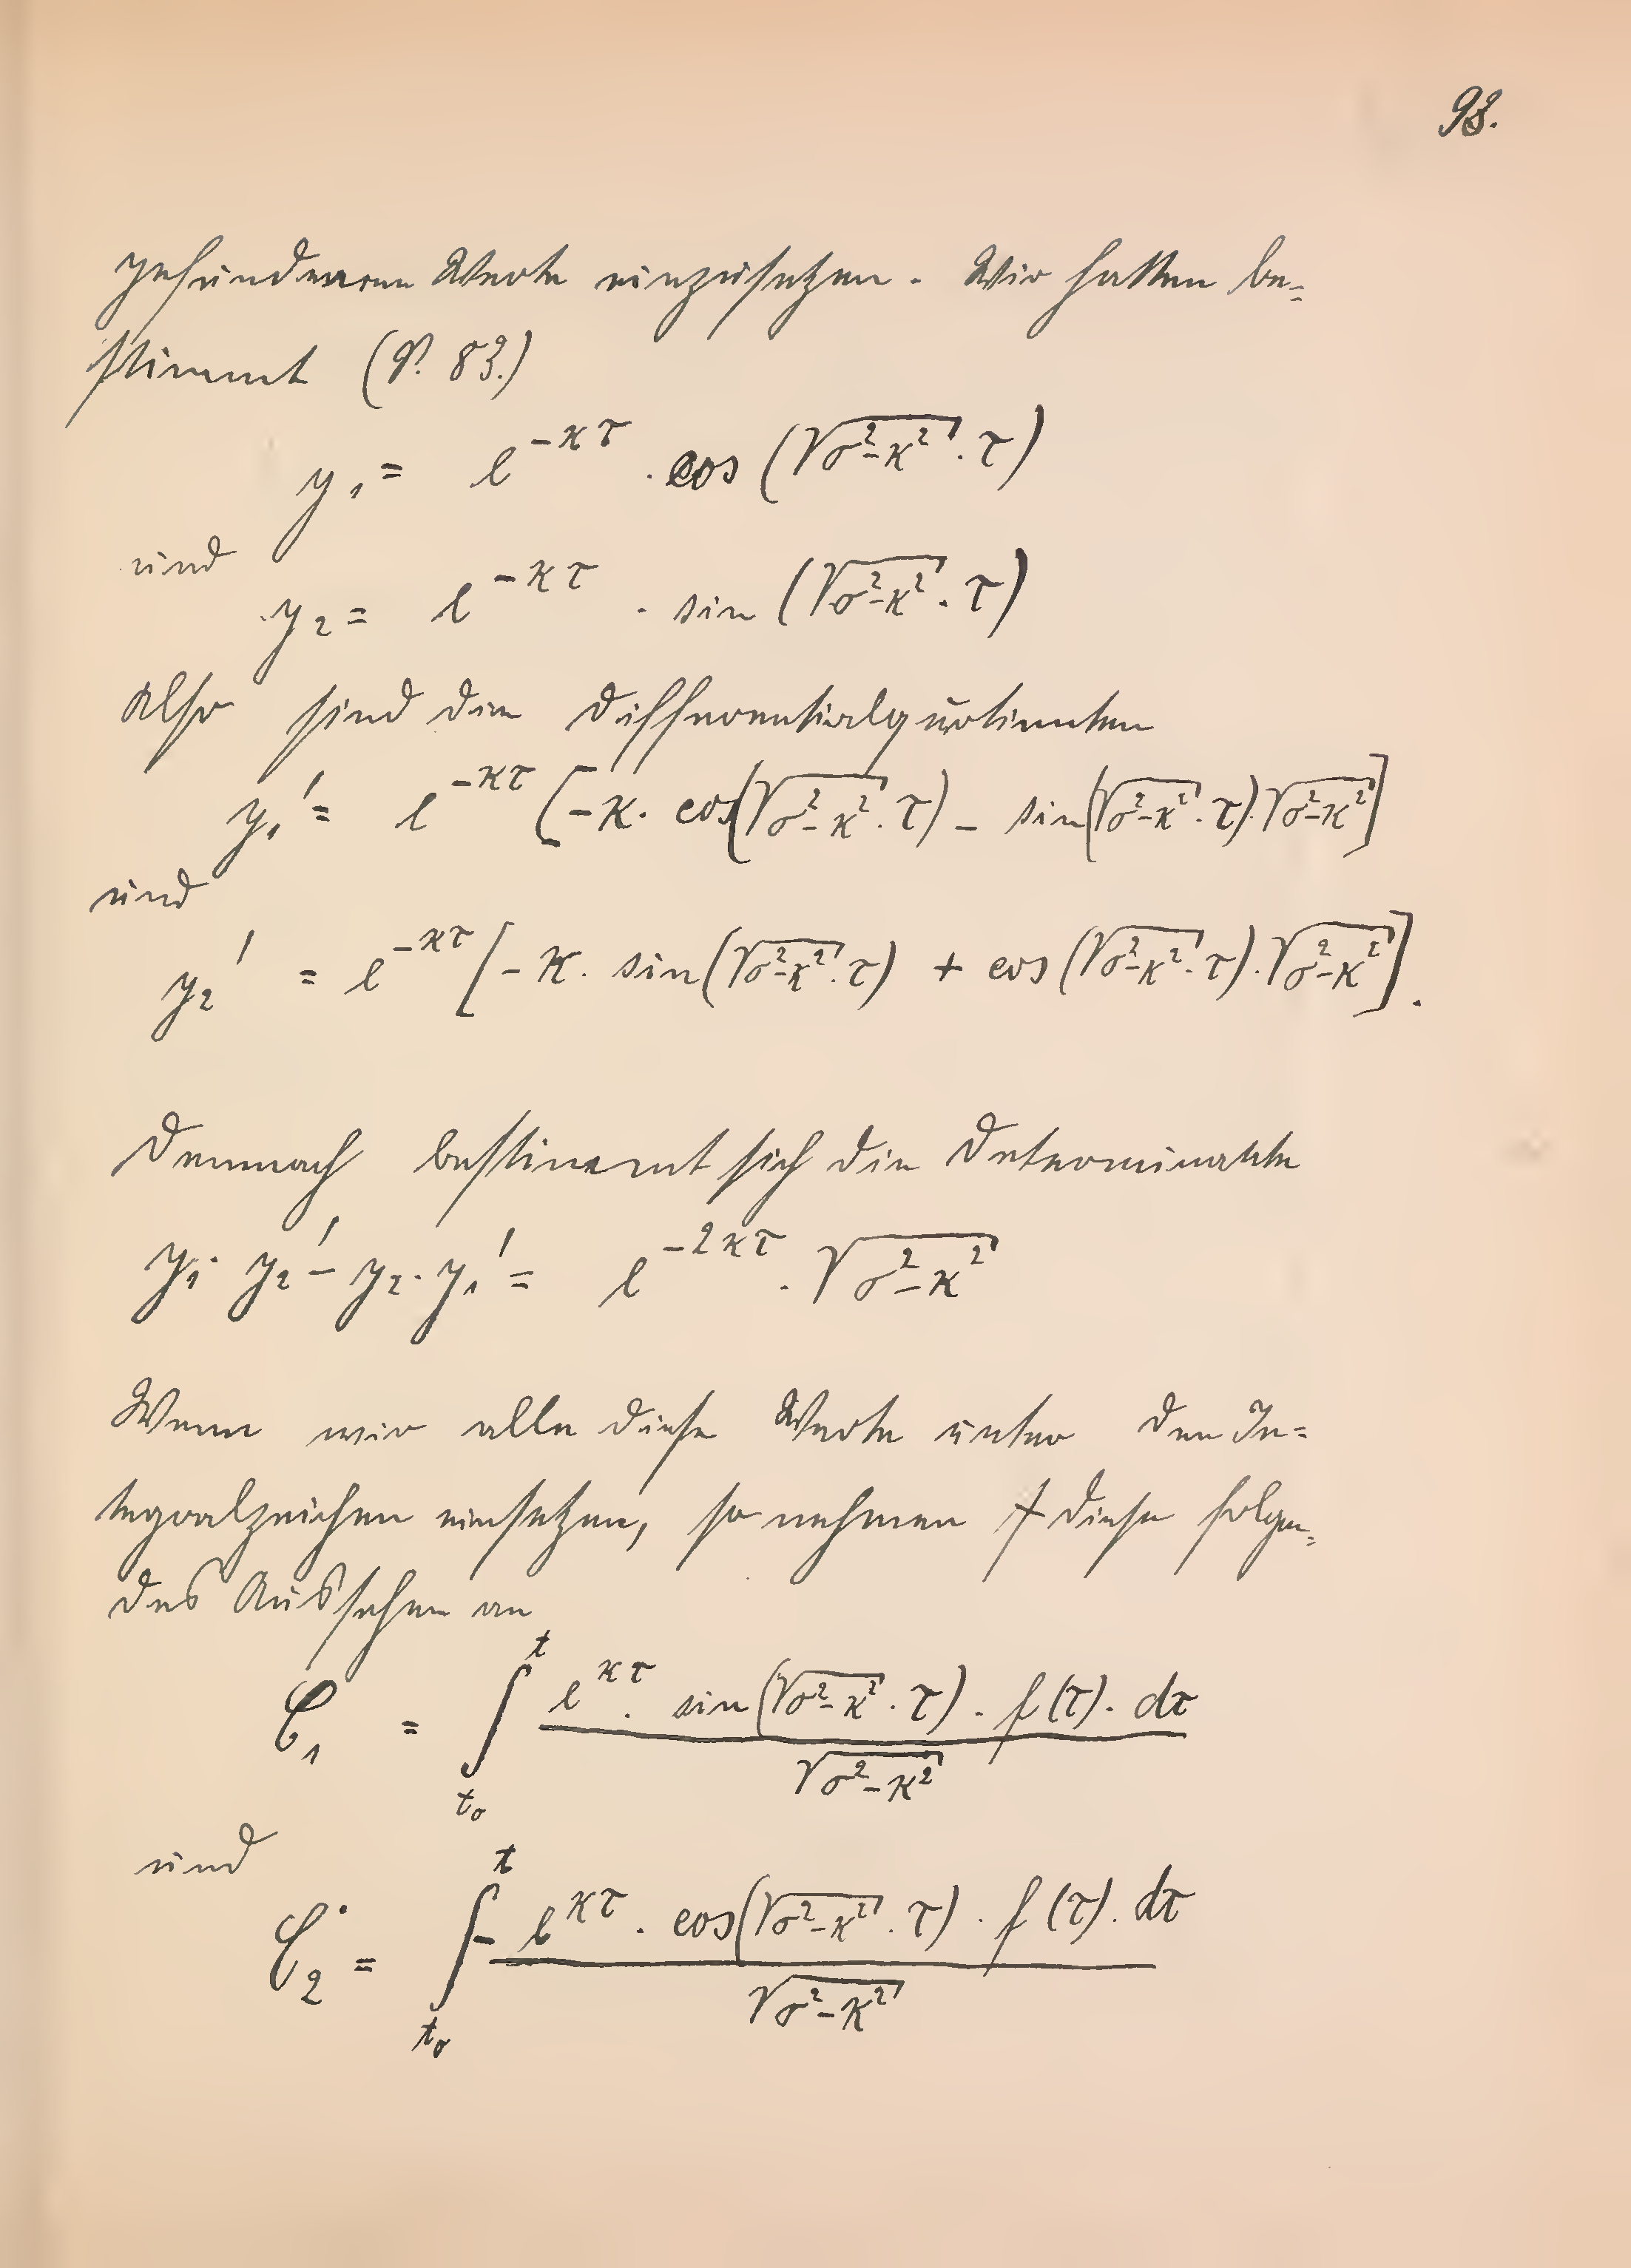 93.
gefundenen Werte einzusetzen. Wir hatten be=
stimmt (P. 83.)
y₁ = e^{-κτ} · cos (√(σ²-κ²) · τ)
und
y₂ = e^{-κτ} · sin (√(σ²-κ²) · τ)
Also sind die Differentialquotienten
y₁' = e^{-κτ} [-κ · cos(√(σ²-κ²) · τ) - sin(√(σ²-κ²) · τ) · √(σ²-κ²)]
und
y₂' = e^{-κτ} [-κ · sin(√(σ²-κ²) · τ) + cos(√(σ²-κ²) · τ) · √(σ²-κ²)].
Demnach bestimmt sich die Determinante
y₁ · y₂' - y₂ · y₁' = e^{-2κτ} · √(σ²-κ²)
Wenn wir alle diese Werte unter den In=
tegralzeichen einsetzen, so nehmen diese folgen=
des Aussehen an
C₁ = ∫_{t₀}^{t} e^{κτ} · sin(√(σ²-κ²) · τ) · f(τ) · dτ / √(σ²-κ²)
und
C₂ = ∫_{t₀}^{t} - e^{κτ} · cos(√(σ²-κ²) · τ) · f(τ) · dτ / √(σ²-κ²)